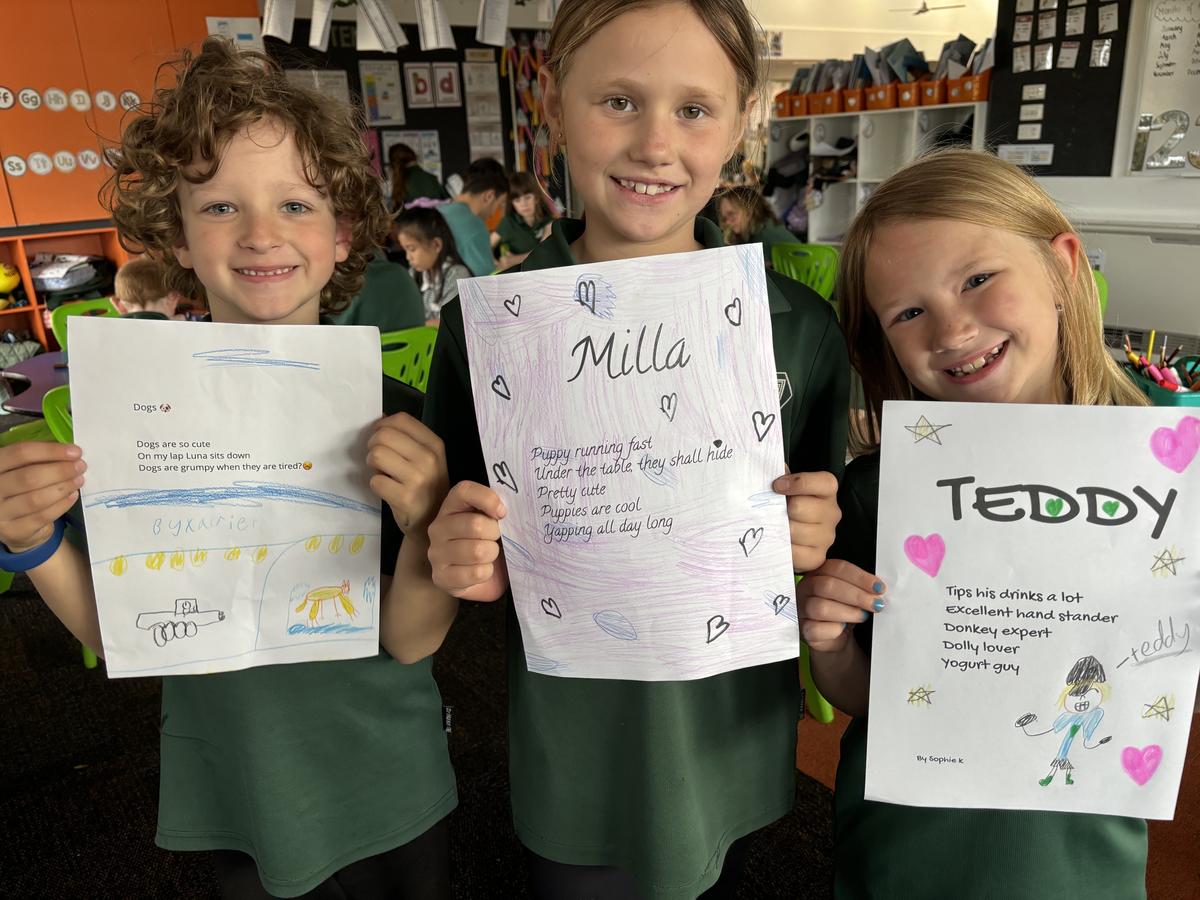 Ff Gg Hh Ii Jj Kk
Ss Tt Uu Vv
b d
Months of
Dogs 🐶
Dogs are so cute
On my lap Luna sits down
Dogs are grumpy when they are tired?😠
By Xavier
Milla
Puppy running fast
Under the table, they shall hide
Pretty cute
Puppies are cool
Yapping all day long
TEDDY
Tips his drinks a lot
Excellent hand stander
Donkey expert
Dolly lover
Yogurt guy
teddy
By Sophie K